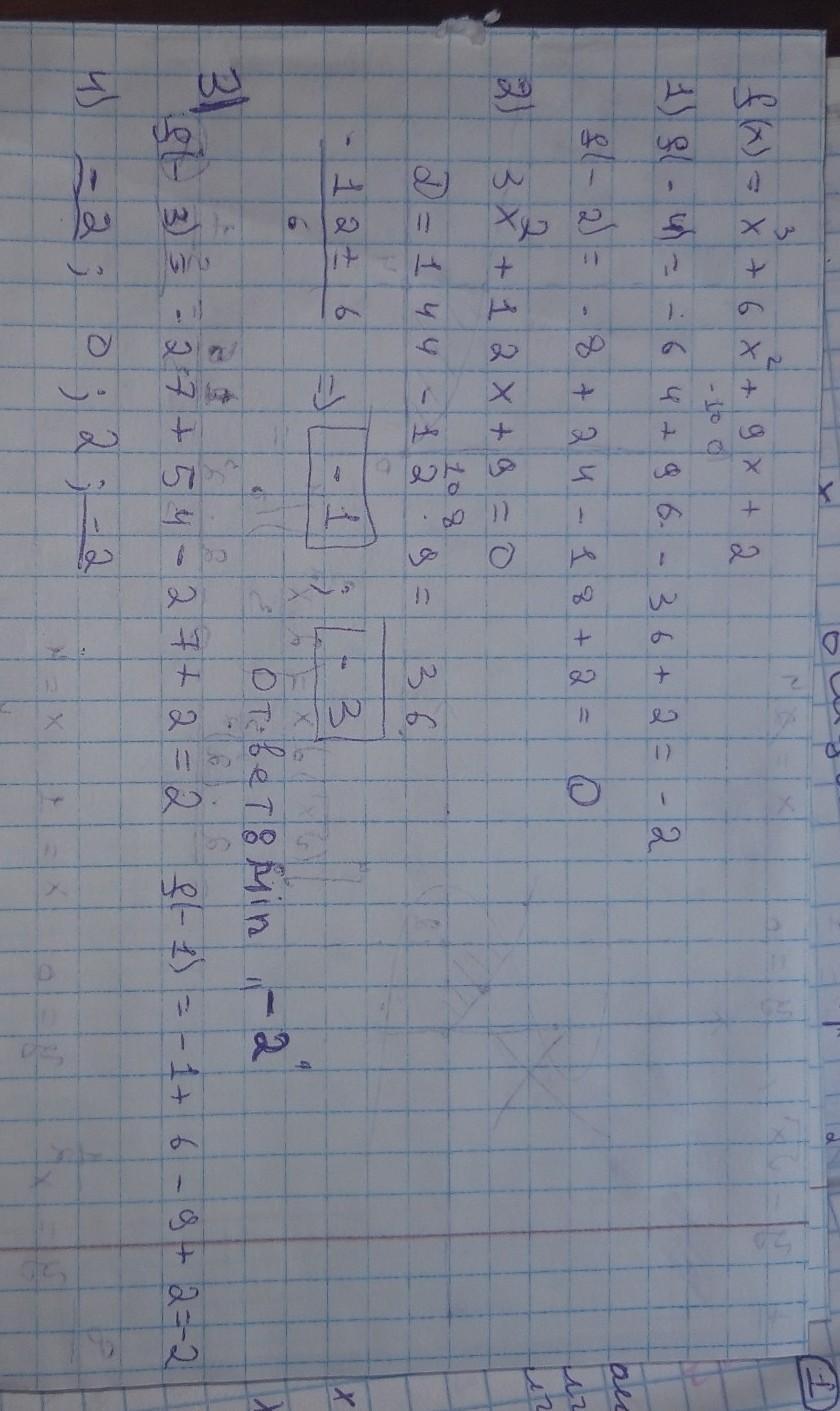 f(x) = x³ + 6x² + 9x + 2
1) f(-4) = -64 + 96 - 36 + 2 = -2
f(-2) = -8 + 24 - 18 + 2 = 0
2) 3x² + 12x + 9 = 0
108
D = 144 - 12 · 9 = 36
-12 ± 6 / 6 => -1 ; -3
Ответ min "-2"
3) f(-3) = -27 + 54 - 27 + 2 = 2 f(-1) = -1 + 6 - 9 + 2 = -2
4) -2 ; 0 ; 2 ; -2